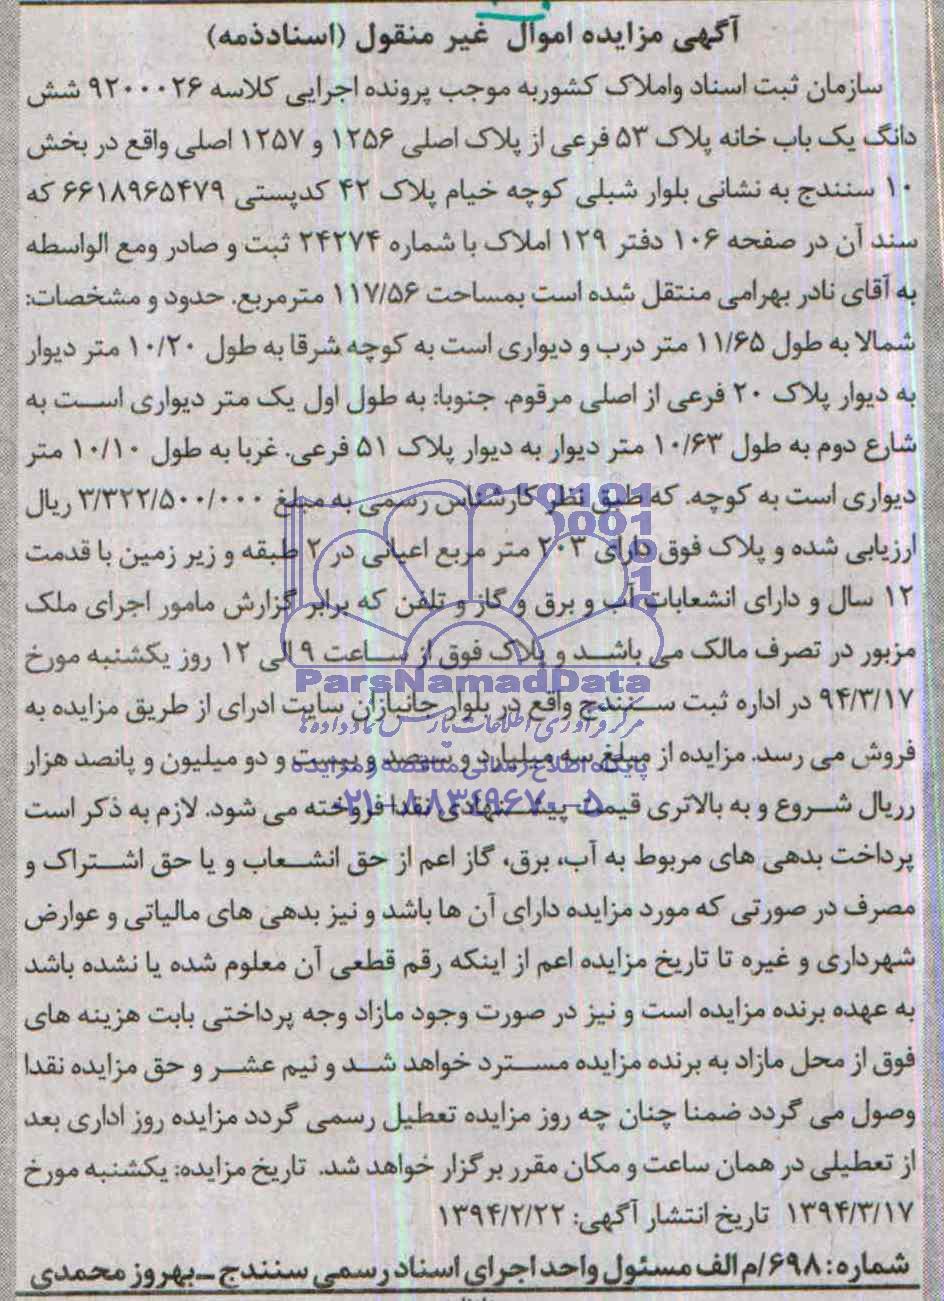 آگهی مزایده اموال غیر منقول (اسنادذمه)
سازمان ثبت اسناد واملاک کشوربه موجب پرونده اجرایی کلاسه ۹۲۰۰۰۲۶ شش
دانگ یک باب خانه پلاک ۵۳ فرعی از پلاک اصلی ۱۲۵۶ و ۱۲۵۷ اصلی واقع در بخش
۱۰ سنندج به نشانی بلوار شبلی کوچه خیام پلاک ۴۲ کدپستی ۶۶۱۸۹۶۵۴۷۹ که
سند آن در صفحه ۱۰۶ دفتر ۱۲۹ املاک با شماره ۲۴۲۷۴ ثبت و صادر ومع الواسطه
به آقای نادر بهرامی منتقل شده است بمساحت ۱۱۷/۵۶ مترمربع. حدود و مشخصات:
شمالا به طول ۱۱/۶۵ متر درب و دیواری است به کوچه شرقا به طول ۱۰/۲۰ متر دیوار
به دیوار پلاک ۲۰ فرعی از اصلی مرقوم. جنوبا: به طول اول یک متر دیواری است به
شارع دوم به طول ۱۰/۶۳ متر دیوار به دیوار پلاک ۵۱ فرعی. غربا به طول ۱۰/۱۰ متر
دیواری است به کوچه. که طبق نظر کارشناس رسمی به مبلغ ۳/۳۲۲/۵۰۰/۰۰۰ ریال
ارزیابی شده و پلاک فوق دارای ۲۰۳ متر مربع اعیانی در ۲ طبقه و زیر زمین با قدمت
۱۲ سال و دارای انشعابات آب و برق و گاز و تلفن که برابر گزارش مامور اجرای ملک
مزبور در تصرف مالک می باشد و پلاک فوق از ساعت ۹ الی ۱۲ روز یکشنبه مورخ
ParsNamadData
۹۴/۳/۱۷ در اداره ثبت سنندج واقع در بلوار جانبازان سایت ادرای از طریق مزایده به
مرکز فرآوری اطلاعات پارس نماد داده ها
فروش می رسد. مزایده از مبلغ سه میلیارد و سیصد و بیست و دو میلیون و پانصد هزار
پایگاه اطلاع رسانی مناقصه و مزایده
رریال شروع و به بالاتری قیمت پیشنهادی نقدا فروخته می شود. لازم به ذکر است
۰۲۱-۸۸۳۴۹۶۷۰-۵
پرداخت بدهی های مربوط به آب، برق، گاز اعم از حق انشعاب و یا حق اشتراک و
مصرف در صورتی که مورد مزایده دارای آن ها باشد و نیز بدهی های مالیاتی و عوارض
شهرداری و غیره تا تاریخ مزایده اعم از اینکه رقم قطعی آن معلوم شده یا نشده باشد
به عهده برنده مزایده است و نیز در صورت وجود مازاد وجه پرداختی بابت هزینه های
فوق از محل مازاد به برنده مزایده مسترد خواهد شد و نیم عشر و حق مزایده نقدا
وصول می گردد ضمنا چنان چه روز مزایده تعطیل رسمی گردد مزایده روز اداری بعد
از تعطیلی در همان ساعت و مکان مقرر برگزار خواهد شد. تاریخ مزایده: یکشنبه مورخ
۱۳۹۴/۳/۱۷ تاریخ انتشار آگهی: ۱۳۹۴/۲/۲۲
شماره: ۶۹۸/م الف مسئول واحد اجرای اسناد رسمی سنندج ـ بهروز محمدی